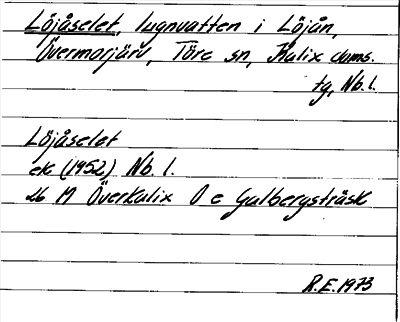 Löjåselet, lugnvatten i Löjån,
Övermorjärv, Töre sn, Kalix doms.
tg, Nb. l.
Löjåselet
ek (1952) Nb. l.
26 M Överkalix O e Galbergsträsk
R.E. 1973